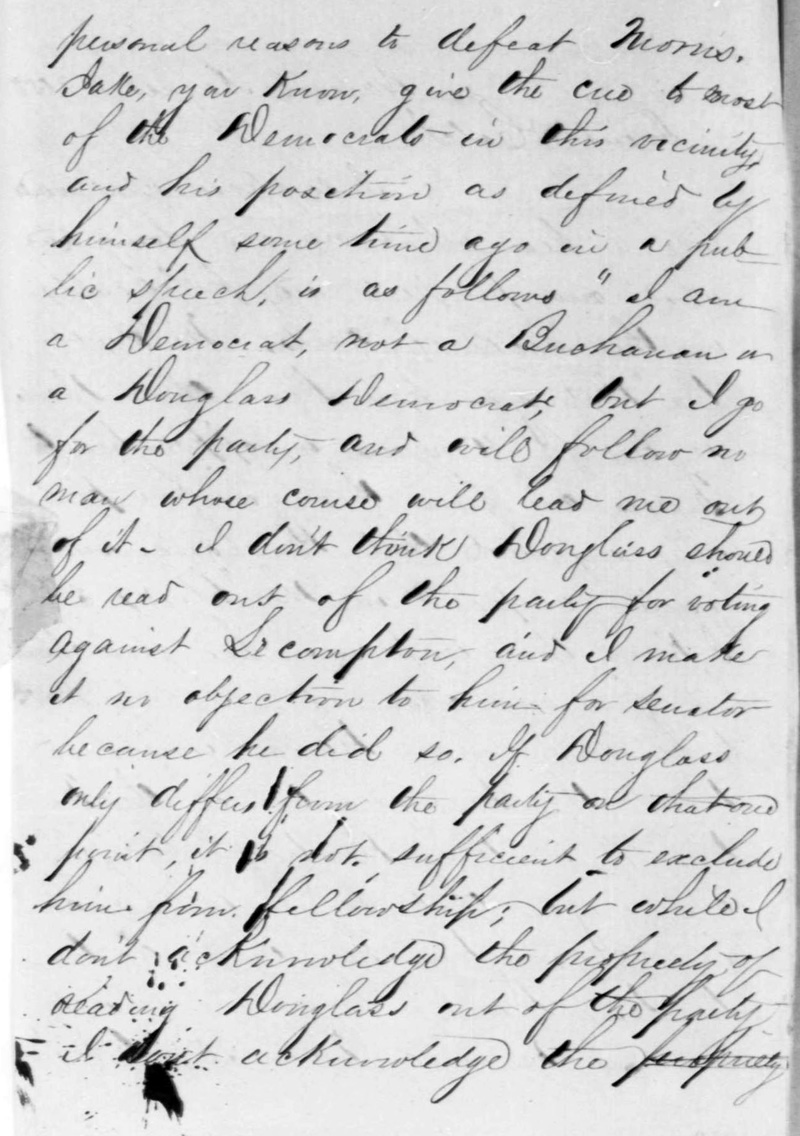 personal reasons to defeat Morris.
Jake, you Know, give the cue to most
of the Democrats in this vicinity,
and his position as defined by
himself some time ago in a pub-
lic speech, is as follows "I am
a Democrat, not a Buchanan or
a Douglass Democrat, but I go
for the party, and will follow no
man whose course will lead me out
of it - I don't think Douglass should
be read out of the party for voting
against Lecompton, and I make
it no objection to him for senator
because he did so. If Douglass
only differs from the party on that one
point, it is not sufficient to exclude
him from fellowship; but while I
don't acknowledge the propriety of
reading Douglass out of the party
I dont acknowledge the propriety